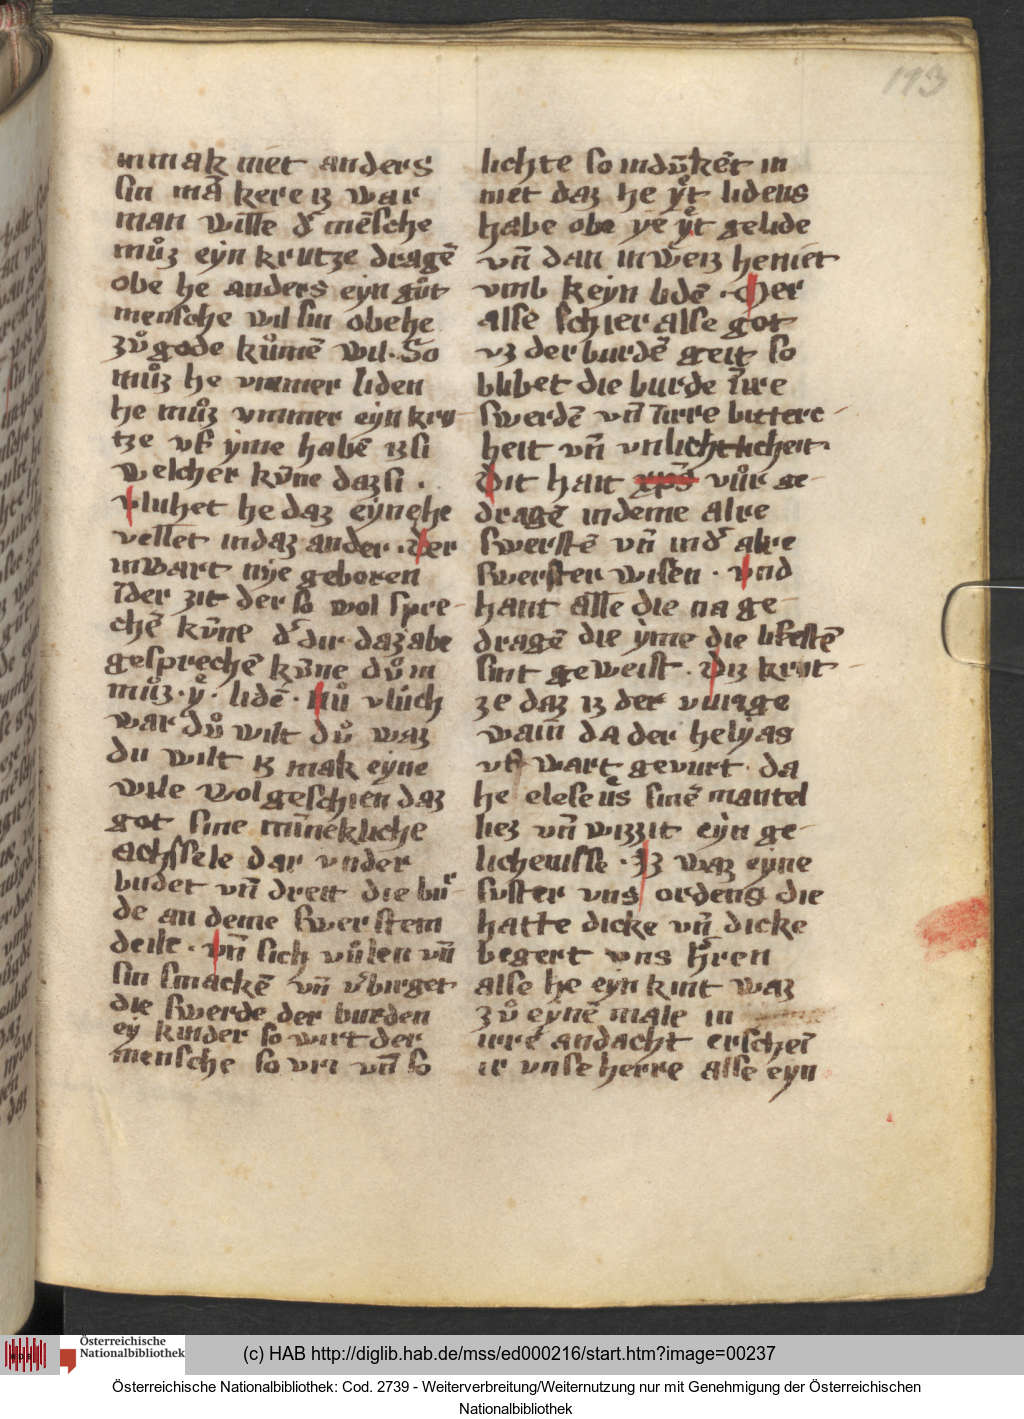 113
inmak niet anders
sin mā kere iz war
man wille dˀ mēsche
muͦz eyn krutze dragē
obe he anders eyn guͦt
mensche wil sin obe he
zuͦ gode kuͦmē wil · So
muͦz he vmmer liden
he muͦz vmmer eyn kru-
tze vf yme habē iz si
welcher kūne daz si ·
vluhet he daz eyne he
vellet in daz ander · der
inwart nye geboren
īder zit der so wol spre-
chē kūne dˀ dir daz abe
gesprechē kūne duͦ in
muͦz · yͦ · lidē · Nuͦ vluch
war duͦ wilt duͦ waz
du wilt iz mak eyne
wile wol geschien daz
got sine mīnekliche
achssele dar vnder
budet vn̄ dreit die bur-
de an deme swersten
deile · vn̄ sich vuͦlen vn̄
sin smackē vn̄ vˀbirget
die swerde der burden
ey kinder so wirt der
mensche so vri vn̄ so
lichte so indūkēt in
niet daz he yͦt lidens
habe obe ye yͦt gelide
vn̄ dan inweiz he niet
vmb keyn lidē · Mer
alse schier alse got
vz der burdē geit so
blibet die burde īire
swerdē vn̄ īirre bittere-
heit vn̄ vnlichtlicheit
Dit hait xp̄s vuͦr ge-
dragē in deme alre
swerstē vn̄ in dˀ alre
swerster wisen · vnd
hant alle die na ge-
dragē die yme die liefestē
sint geweist · Diz krut-
ze daz iz der vuirige
wain da der helyas
vf wart gevurt · da
he eleseūs sinē mantel
liez vn̄ wizzit eyn ge-
lichenisse · Iz waz eyne
suster vns ordens die
hatte dicke vn̄ dicke
begert vns hˀren
alse he eyn kint waz
zuͦ eynē male in
irre andacht erschei
ir vnse herre alse eyn
Österreichische
Nationalbibliothek
(c) HAB http://diglib.hab.de/mss/ed000216/start.htm?image=00237
Österreichische Nationalbibliothek: Cod. 2739 - Weiterverbreitung/Weiternutzung nur mit Genehmigung der Österreichischen
Nationalbibliothek